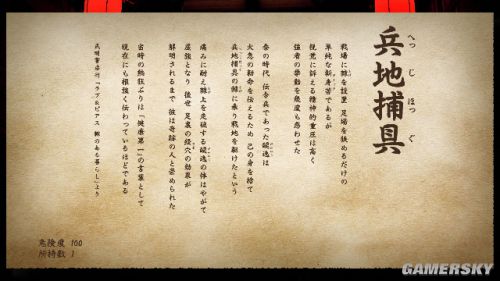 兵地捕具
へっじほっぐ
戦場に棘を設置 足場を狭めるだけの
単純な新身苦であるが
視覚に訴える精神的重圧は高く
強者の挙動を幾度も惑わせた
秦の時代 伝令兵であった
火急の勅命を伝えるため 己の身を捨て
兵地捕具の棘に乗り戦地を駆けたという
痛みに耐え棘上を走破する の体はやがて
屈強となり 後世 足裏の経穴の効果が
解明されるまで 彼は奇跡の人と崇められた
当時の熱狂ぶりは「健康第一」の言葉として
現在にも根強く伝わっているほどである
民明書房刊『ラブ&ピアス 棘のある暮らし』より
危険度 100
所持数 1
GAMERSKY